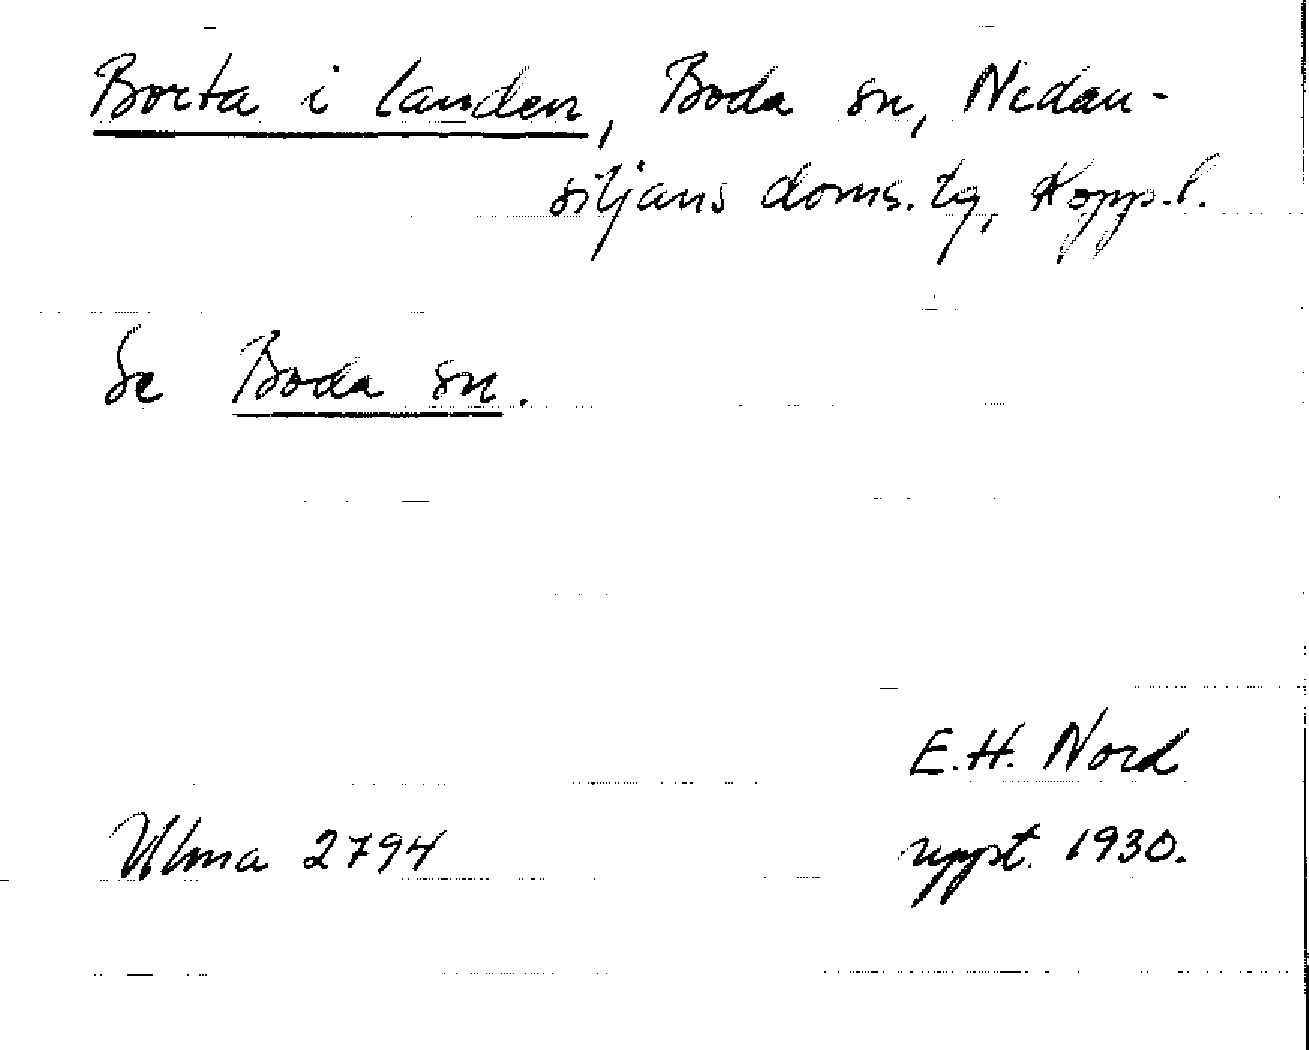 Borta i landen, Boda sn, Nedan-
siljans doms. tg, Kopp. l.
Se Boda sn.
E.H. Nord
Ulma 2794
uppt. 1930.